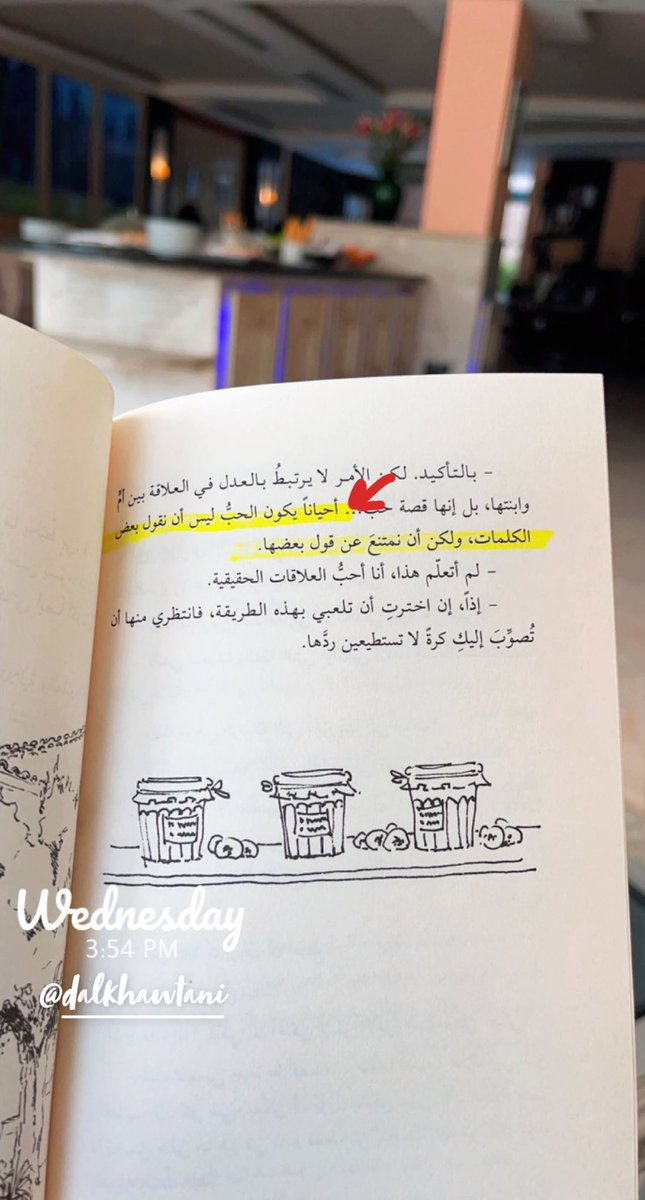 - بالتأكيد. لكن الأمر لا يرتبطُ بالعدل في العلاقة بين أمٍّ
وابنتها، بل إنها قصة حب... أحياناً يكون الحبُّ ليس أن نقول بعض
الكلمات، ولكن أن نمتنعَ عن قول بعضها.
- لم أتعلّم هذا، أنا أحبُّ العلاقات الحقيقية.
- إذاً، إن اخترتِ أن تلعبي بهذه الطريقة، فانتظري منها أن
تُصوِّبَ إليكِ كرةً لا تستطيعين ردَّها.
Wednesday
3:54 PM
@dalkhawtani